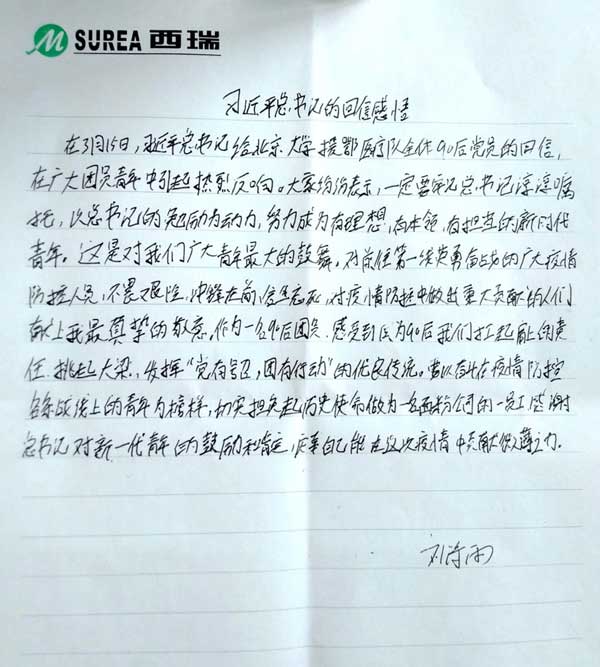 SUREA 西瑞
习近平总书记的回信感悟
在3月15日，习近平总书记给北京大学援鄂医疗队全体90后党员的回信，
在广大团员青年中引起热烈反响。大家纷纷表示，一定要牢记总书记谆谆嘱
托，以总书记的勉励为动力，努力成为有理想，有本领，有担当的新时代
青年。这是对我们广大青年最大的鼓舞，对前往第一线英勇奋战的广大疫情
防控人员，不畏艰险，冲锋在前，舍生忘死，对疫情防控中做出重大贡献的人们
献上我最真挚的敬意，作为一名90后团员，感受到因为90后我们扛起肩上的责
任，挑起大梁，发挥“党有号召，团有行动”的优良传统。要以奋斗在疫情防控
各条战线上的青年为榜样，切实担负起历史使命做为一名西瑞公司的一员工感谢
总书记对新一代青年的鼓励和肯定，庆幸自己能在这次疫情中贡献绵薄之力。
刘诗雨